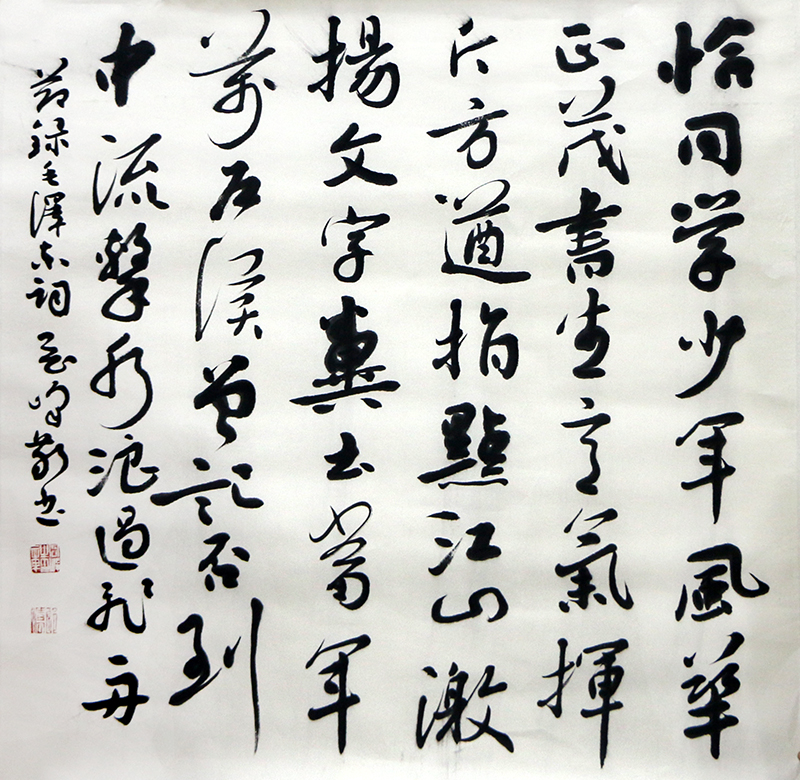 恰同学少年風華
正茂書生意氣揮
斥方遒指點江山激
揚文字糞土當年
萬戶侯曾記否到
中流擊水浪遏飛舟
节録毛澤东詞 峰敬书